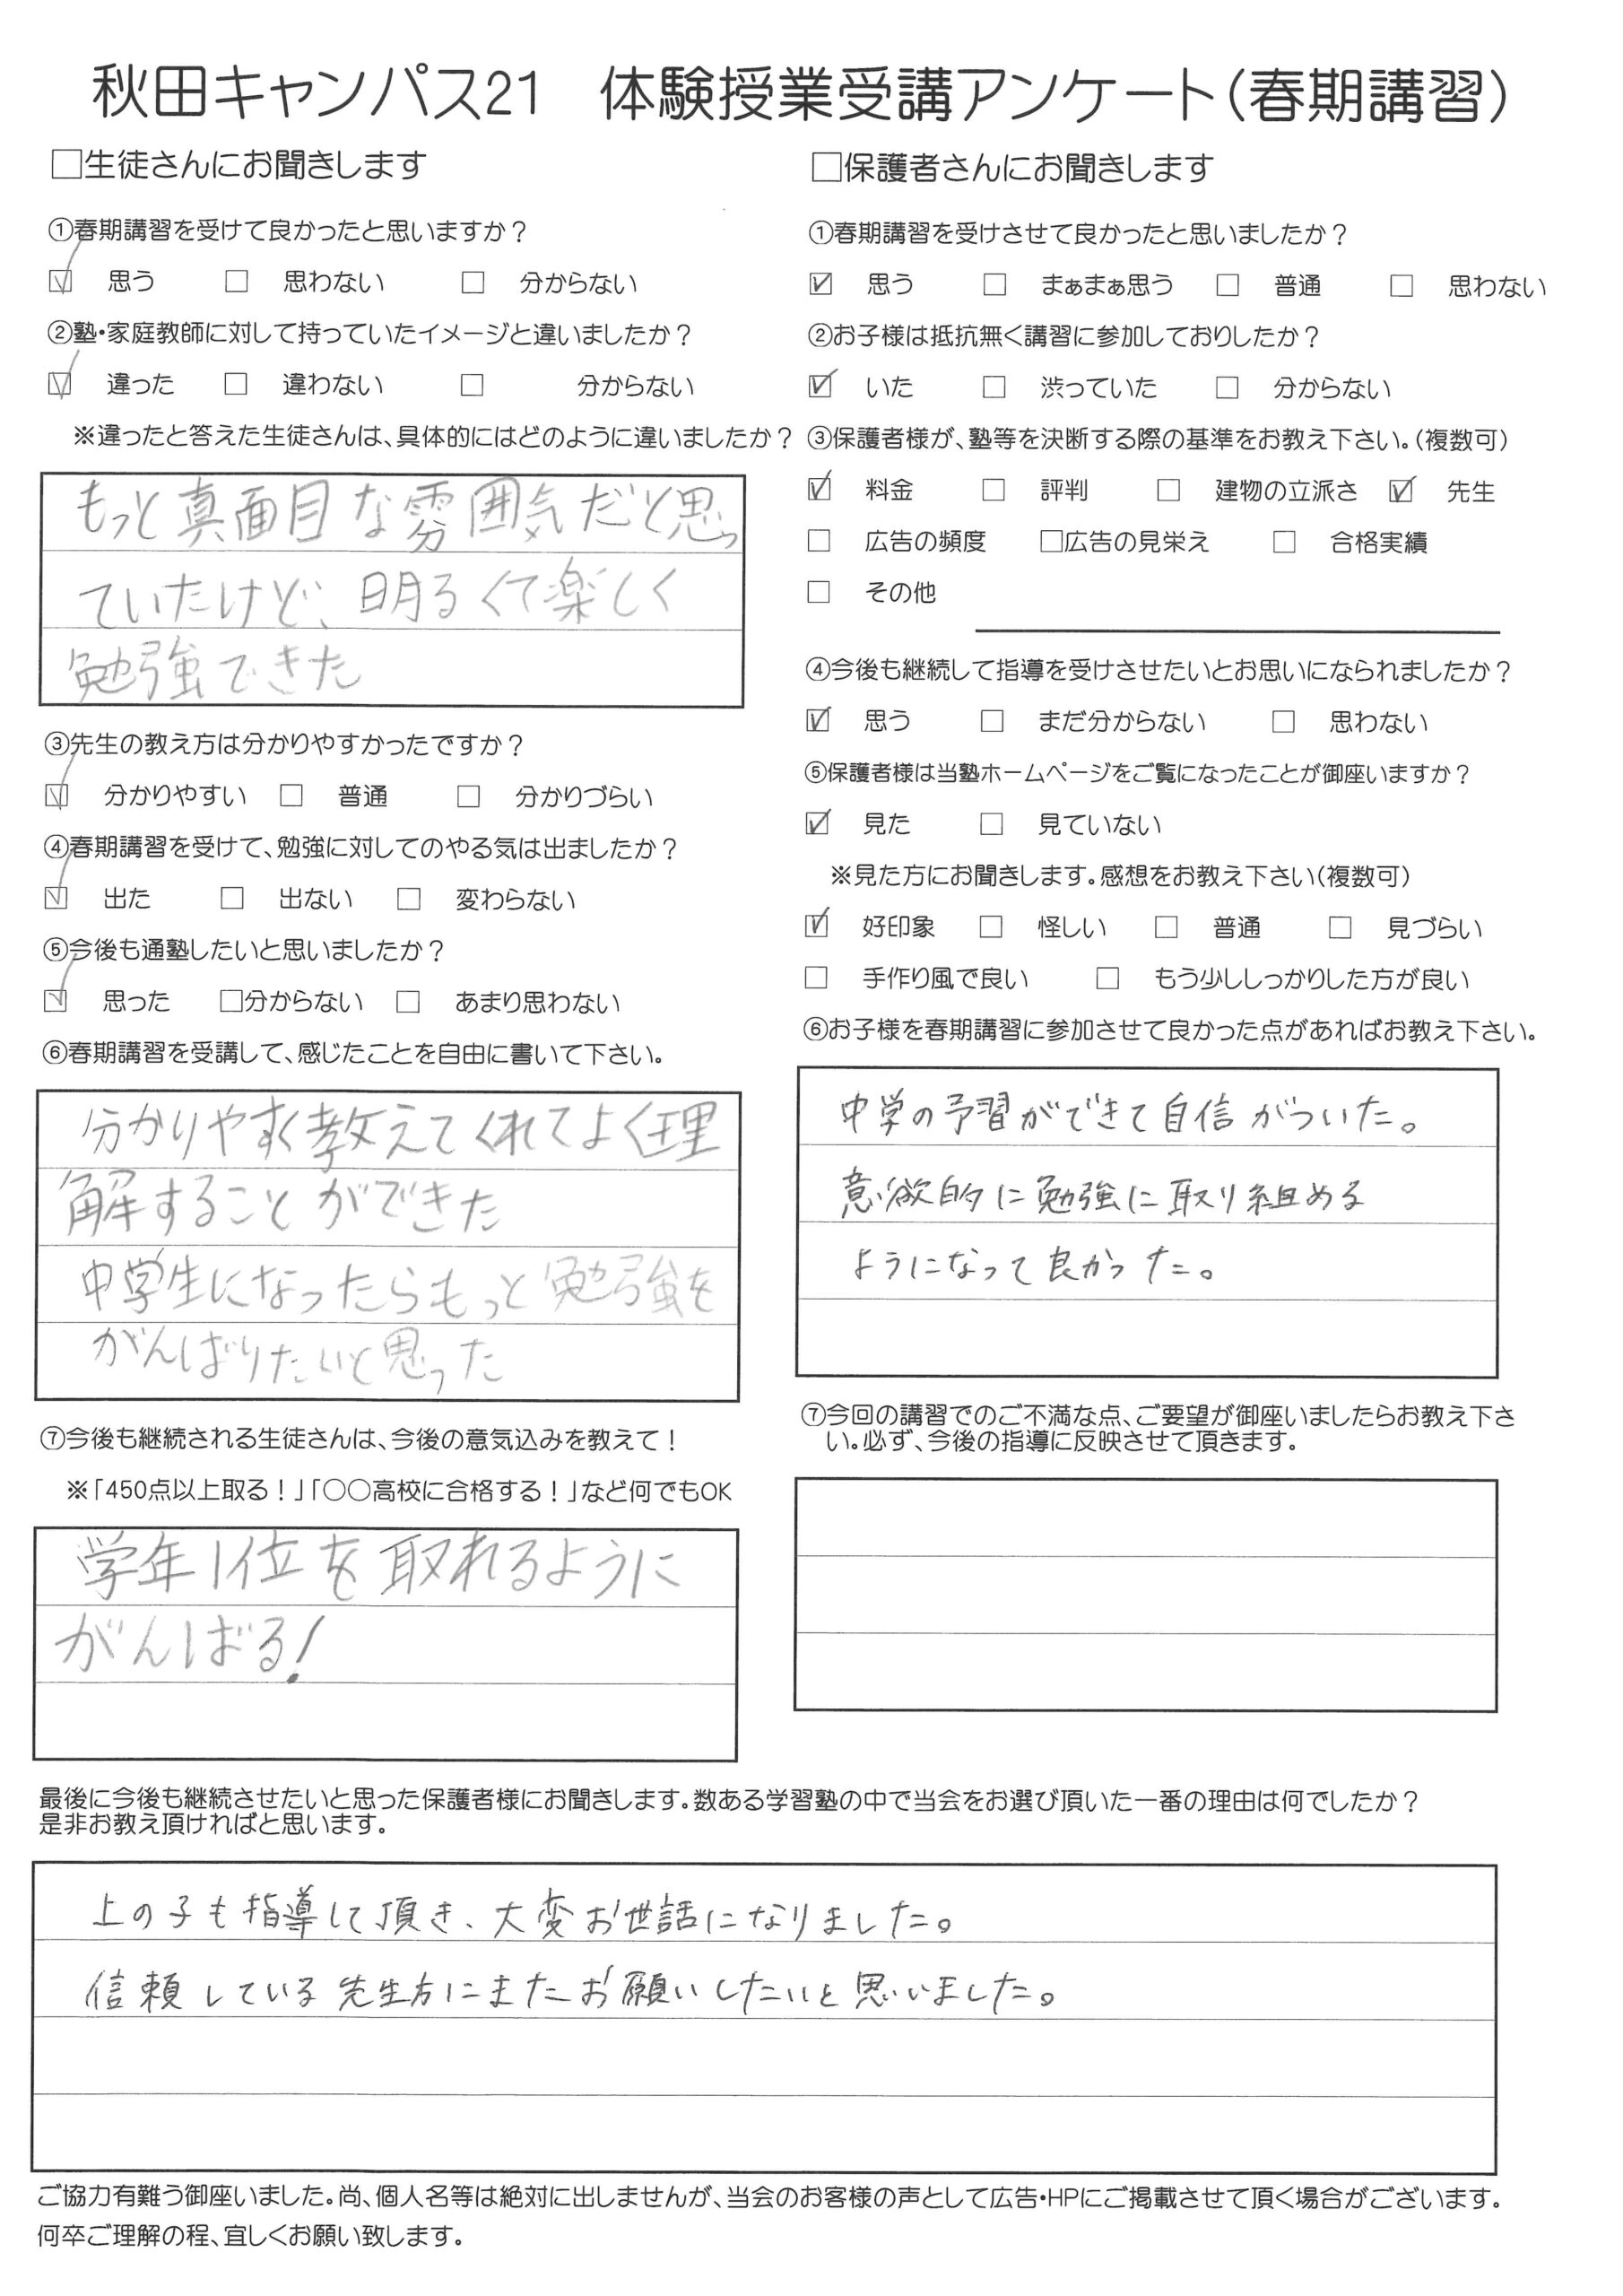 秋田キャンパス21　体験授業受講アンケート(春期講習)
□生徒さんにお聞きします
①春期講習を受けて良かったと思いますか？
☑　思う　□　思わない　□　分からない
②塾・家庭教師に対して持っていたイメージと違いましたか？
☑　違った　□　違わない　□　分からない
※違ったと答えた生徒さんは、具体的にはどのように違いましたか？
もっと真面目な雰囲気だと思っ
ていたけど、明るくて楽しく
勉強できた
③先生の教え方は分かりやすかったですか？
☑　分かりやすい　□　普通　□　分かりづらい
④春期講習を受けて、勉強に対してのやる気は出ましたか？
☑　出た　□　出ない　□　変わらない
⑤今後も通塾したいと思いましたか？
☑　思った　□分からない　□　あまり思わない
⑥春期講習を受講して、感じたことを自由に書いて下さい。
分かりやすく教えてくれてよく理
解することができた
中学生になったらもっと勉強を
がんばりたいと思った
⑦今後も継続される生徒さんは、今後の意気込みを教えて！
※「450点以上取る！」「○○高校に合格する！」など何でもOK
学年1位を取れるように
がんばる！
□保護者さんにお聞きします
①春期講習を受けさせて良かったと思いましたか？
☑　思う　□　まぁまぁ思う　□　普通　□　思わない
②お子様は抵抗無く講習に参加しておりしたか？
☑　いた　□　渋っていた　□　分からない
③保護者様が、塾等を決断する際の基準をお教え下さい。(複数可)
☑　料金　□　評判　□　建物の立派さ　☑　先生
□　広告の頻度　□広告の見栄え　□　合格実績
□　その他
④今後も継続して指導を受けさせたいとお思いになられましたか？
☑　思う　□　まだ分からない　□　思わない
⑤保護者様は当塾ホームページをご覧になったことが御座いますか？
☑　見た　□　見ていない
※見た方にお聞きします。感想をお教え下さい(複数可)
☑　好印象　□　怪しい　□　普通　□　見づらい
□　手作り風で良い　□　もう少ししっかりした方が良い
⑥お子様を春期講習に参加させて良かった点があればお教え下さい。
中学の予習ができて自信がついた。
意欲的に勉強に取り組める
ようになって良かった。
⑦今回の講習でのご不満な点、ご要望が御座いましたらお教え下さ
い。必ず、今後の指導に反映させて頂きます。
最後に今後も継続させたいと思った保護者様にお聞きします。数ある学習塾の中で当会をお選び頂いた一番の理由は何でしたか？
是非お教え頂ければと思います。
上の子も指導して頂き、大変お世話になりました。
信頼している先生方にまたお願いしたいと思いました。
ご協力有難う御座いました。尚、個人名等は絶対に出しませんが、当会のお客様の声として広告・HPにご掲載させて頂く場合がございます。
何卒ご理解の程、宜しくお願い致します。